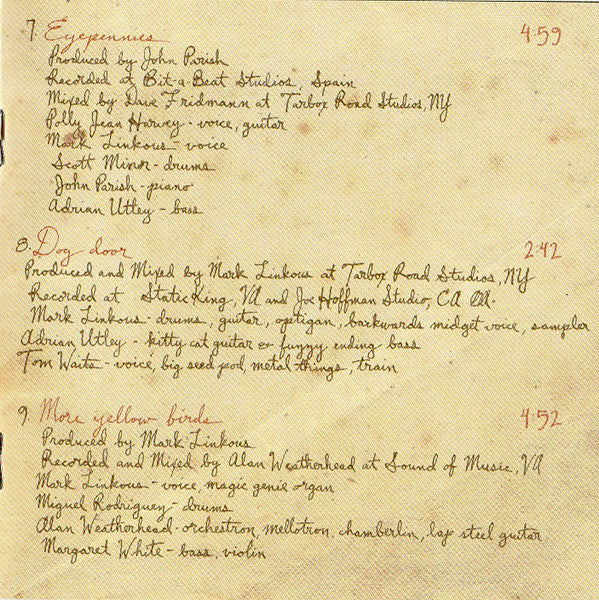 7. Eyepennies 4:59
Produced by John Parish
Recorded at Bit-a-Beat Studios, Spain
Mixed by Dave Fridmann at Tarbox Road Studios, NY
Polly Jean Harvey - voice, guitar
Mark Linkous - voice
Scott Minor - drums
John Parish - piano
Adrian Utley - bass
8. Dog door 2:42
Produced and Mixed by Mark Linkous at Tarbox Road Studios, NY
Recorded at Static King, VA and Joe Hoffman Studio, CA
Mark Linkous - drums, guitar, optigan, backwards midget voice, sampler
Adrian Utley - kitty cat guitar & funny ending bass
Tom Waits - voice, big seed pod, metal things, train
9. More yellow birds 4:52
Produced by Mark Linkous
Recorded and Mixed by Alan Weatherhead at Sound of Music, VA
Mark Linkous - voice, magic genie organ
Miguel Rodriguey - drums
Alan Weatherhead - orchestron, mellotron, chamberlin, lap steel guitar
Margaret White - bass, violin